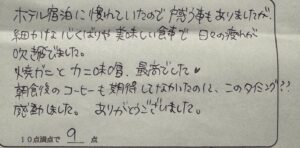 ホテル宿泊に慣れていたので戸惑う事もありましたが、
細かな心くばりや美味しい食事で日々の疲れが
吹き飛びました。
焼ガニとカニ味噌、最高でした♥
朝食後のコーヒーも期待してなかったのに、このタイミング??
感動しました。 ありがとうございました。
10点満点で 9 点